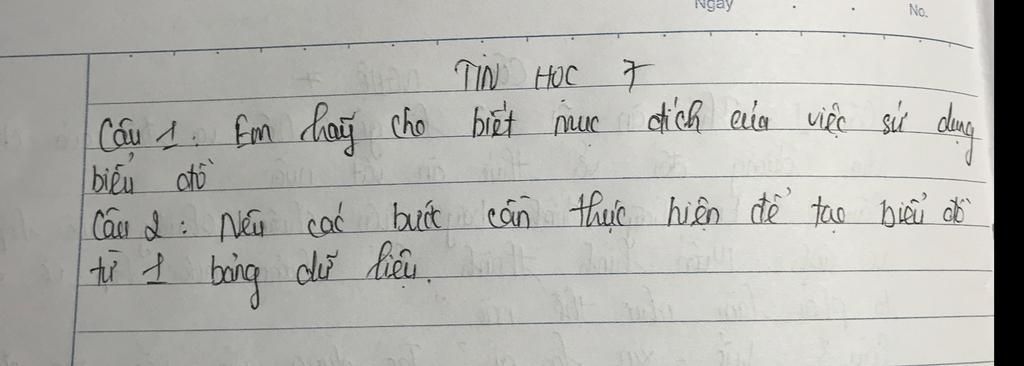 Ngày
No.
TIN HỌC 7
Câu 1: Em hãy cho biết mục đích của việc sử dụng
biểu đồ
Câu 2: Nêu các bước cần thực hiện để tạo biểu đồ
từ 1 bảng dữ liệu.